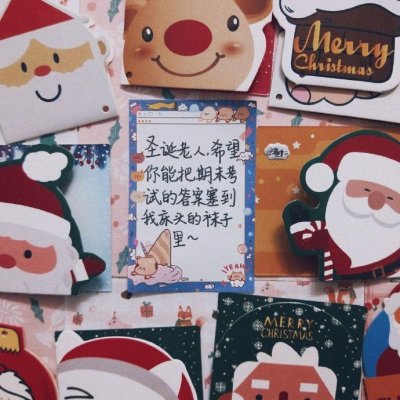 Merry
Christmas
圣诞老人,希望
你能把期末考
试的答案塞到
我床头的袜子
里~
YEAH!
MERRY
CHRISTMAS